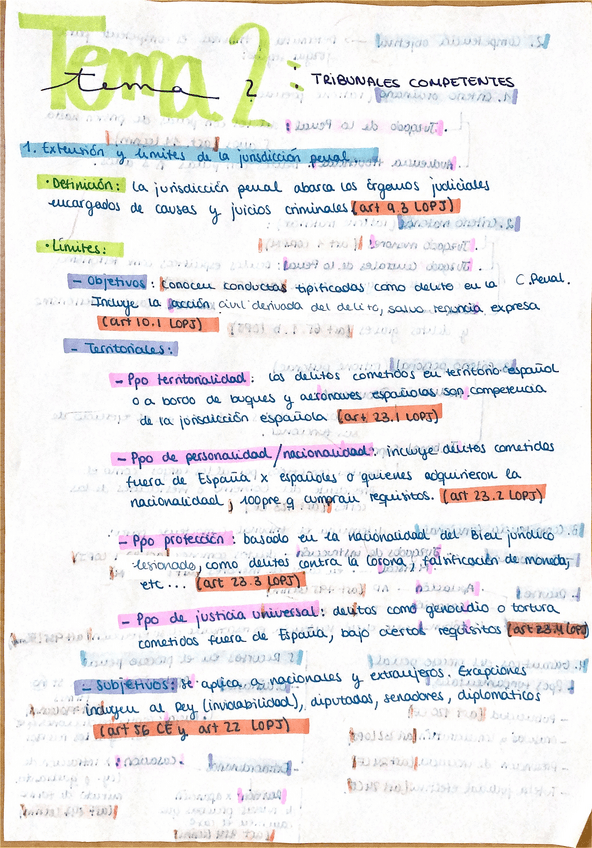 Tema 2:
tema 2
TRIBUNALES COMPETENTES
1. Extensión y límites de la jurisdicción penal
·Definición: la jurisdicción penal abarca los órganos judiciales
encargados de causas y juicios criminales (art 9.3 LOPJ)
·Límites:
- Objetivos: conocen conductas tipificadas como delito en la C.Penal.
Incluye la acción civil derivada del delito, salvo renuncia expresa
(art 10.1 LOPJ)
- Territoriales:
- Ppo territorialidad: los delitos cometidos en territorio español
o a bordo de buques y aeronaves españolas son competencia
de la jurisdicción española (art 23.1 LOPJ)
- Ppo de personalidad/nacionalidad: incluye delitos cometidos
fuera de España x españoles o quienes adquirieron la
nacionalidad, 100pre q cumplan requisitos. (art 23.2 LOPJ)
- Ppo protección: basado en la nacionalidad del bien jurídico
lesionado, como delitos contra la Corona, falsificación de moneda,
etc... (art 23.3 LOPJ)
- Ppo de justicia universal: delitos como genocidio o tortura
cometidos fuera de España, bajo ciertos requisitos (art 23.4 LOPJ)
- Subjetivos: se aplica a nacionales y extranjeros. Excepciones
incluyen al Rey (inviolabilidad), diputados, senadores, diplomáticos
(art 56 CE y art 22 LOPJ)